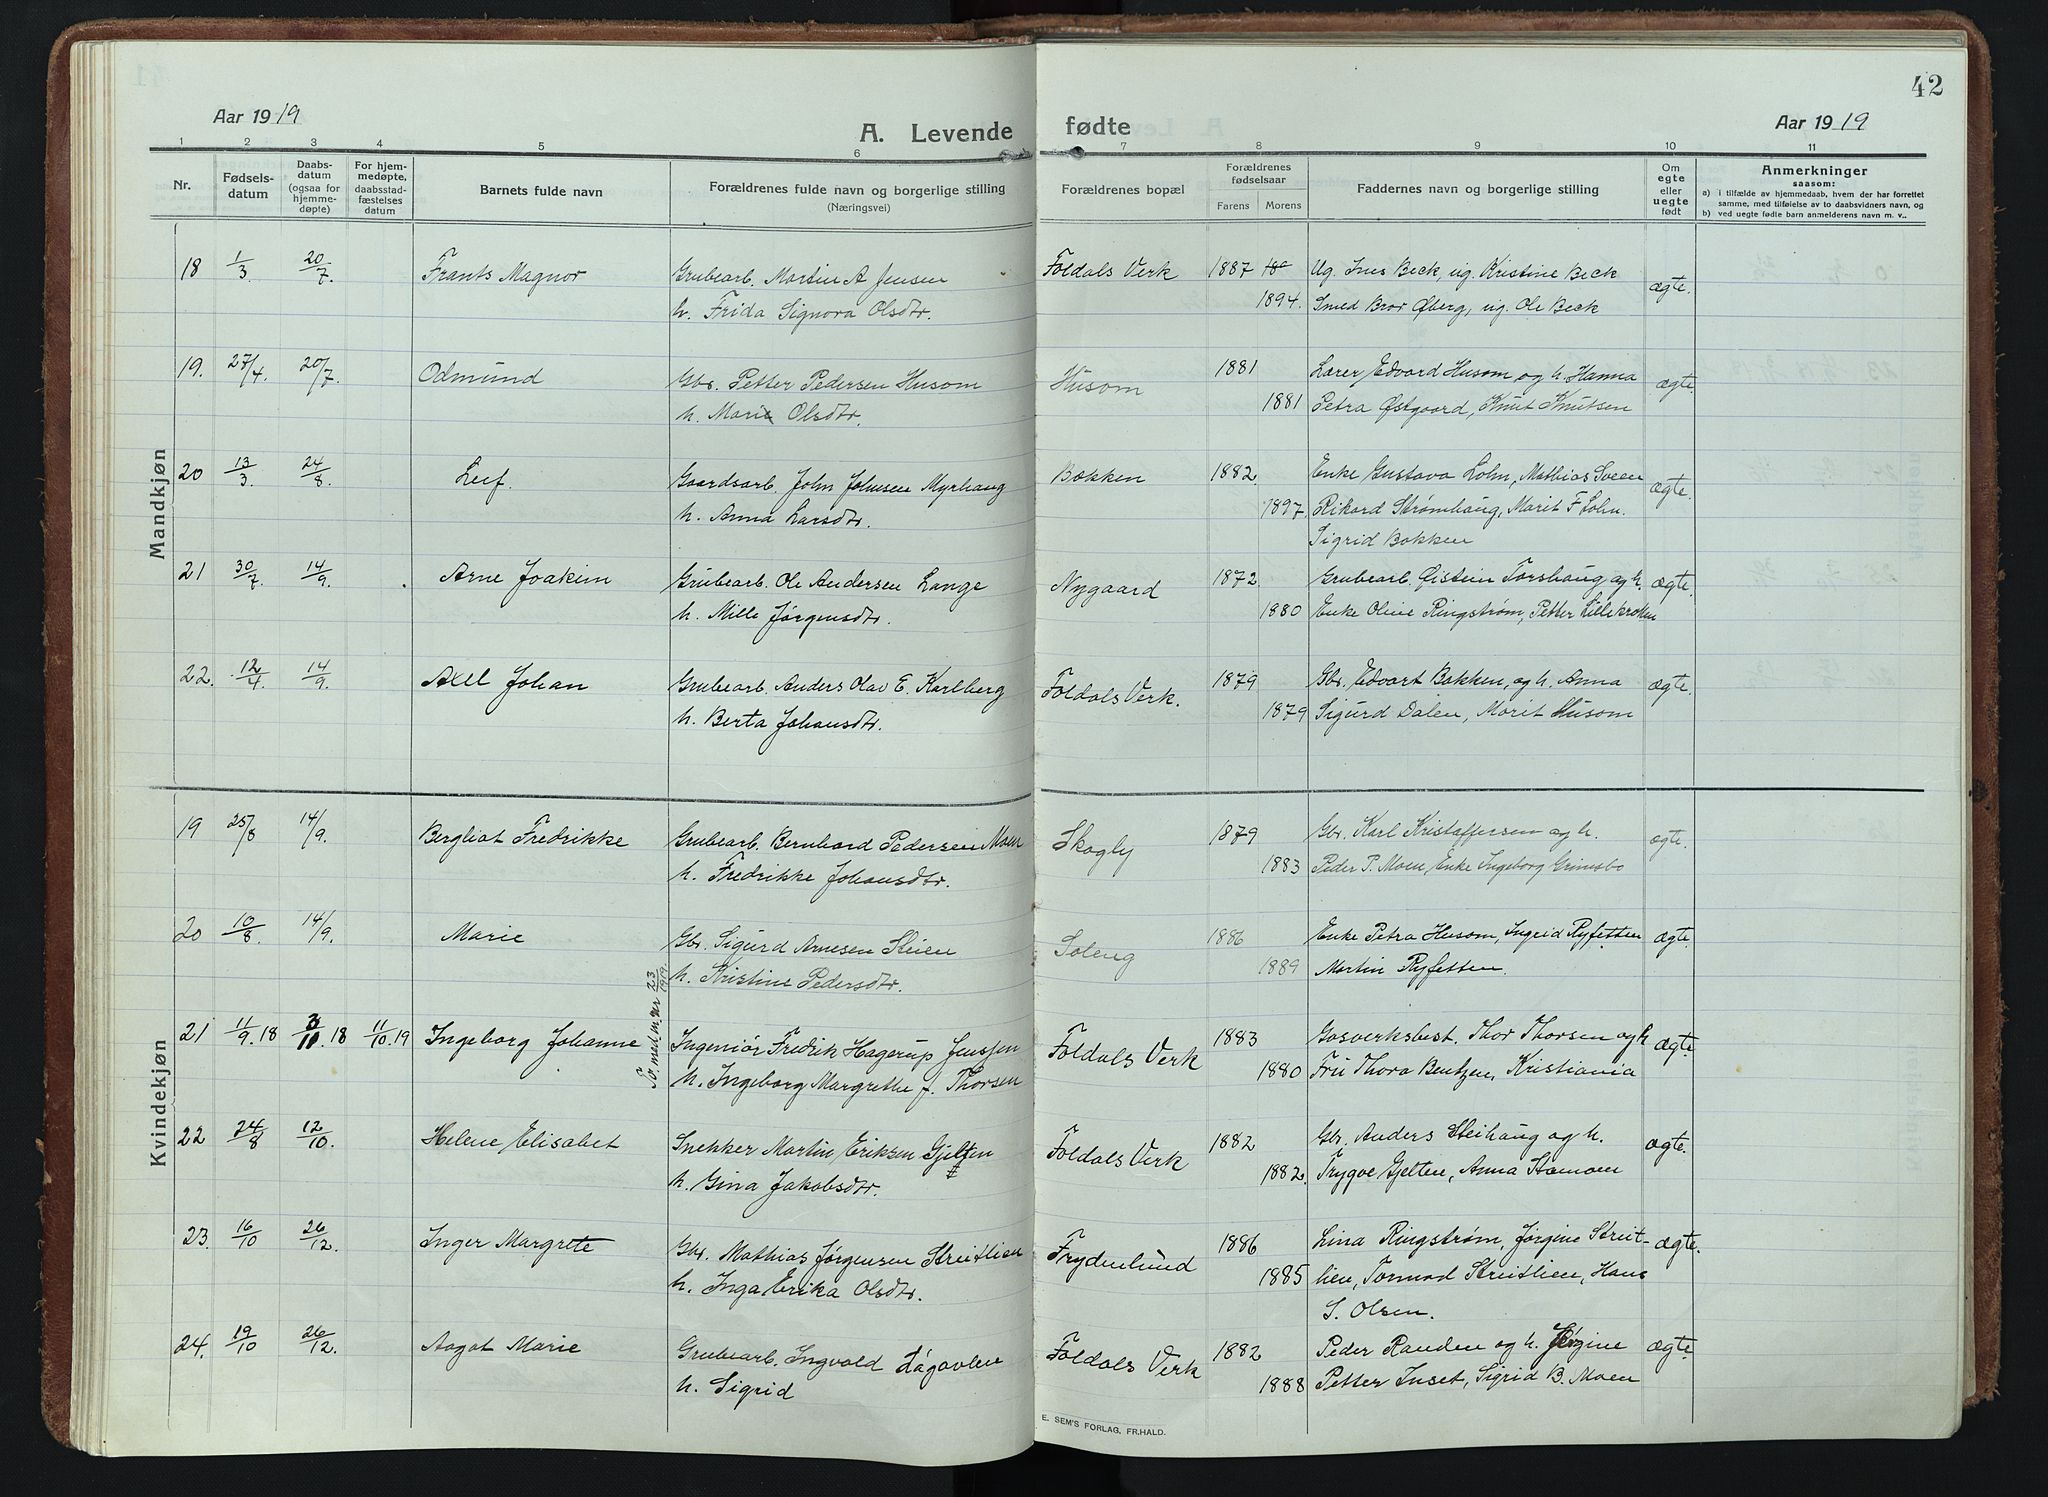 42
Aar 1919
A. Levende fødte
Aar 1919
1 2 3 4 5 6 7 8 9 10 11
Nr.
Fødsels-
datum
Daabs-
datum
(ogsaa for
hjemme-
døpte)
For hjem-
medøpte,
daabsstad-
fæstelses
datum
Barnets fulde navn
Forældrenes fulde navn og borgerlige stilling
(Næringsvei)
Forældrenes bopæl
Forældrenes
fødselsaar
Farens Morens
Faddernes navn og borgerlige stilling
Om
egte
eller
uegte
født
Anmerkninger
saasom:
a) i tilfælde av hjemmedaab, hvem der har forrettet
samme, med tilføielse av to daabsvidners navn, og
b) ved uegte fødte barn anmelderens navn m. v..
Mandkjøn
18 1/3 20/7. Frants Magnor Grubearb. Martin A Jensen Foldals Verk 1887 Ug. Ines Beck, ug. Kristine Beck ægte.
h. Frida Signora Olsdtr. 1894. Smed Bror Øberg, ug. Ole Beck
19. 27/4. 20/7. Odmund Gbr. Petter Pedersen Husom Husom 1881 Lærer Edvard Husom og h. Hanna ægte.
h. Marie Olsdtr. 1881 Petra Østgaard, Knut Knutsen
20 13/3. 24/8. Leif. Gaardsarb. John Johnsen Myrhaug Bækken 1882. Enke Gustava Lohn, Mathias Sveen ægte.
h. Anna Larsdtr. 1897. Rikard Strømhaug, Marit F Lohn.
Sigrid Bækken
21 30/7. 14/9. Arne Joakim Grubearb. Ole Andersen Lange Nygaard 1872 Grubearb. Øistein Torshaug og h. ægte.
h. Mille Jørgensdtr. 1880 Enke Oline Ringstrøm, Petter Lillekroken
22. 12/4. 14/9. Axel Johan Grubearb. Anders Olav E. Karlberg Foldals Verk. 1879 Gbr. Edvart Bækken, og h. Anna ægte.
h. Berta Johansdtr. 1879 Sigurd Dalen, Marit Husom
Kvindekjøn
19 25/8 14/9. Bergliot Fredrikke Grubearb. Bernhard Pedersen Moen Skogly 1879 Gbr. Karl Kristaffersen og h. ægte.
h. Fredrikke Johansdtr. 1883 Peder P. Moen, Enke Ingeborg Grimsbo
20 10/8. 14/9. Marie Gbr. Sigurd Arnesen Steien Soleng 1886 Enke Petra Husom, Ingrid Ryfetten ægte.
h. Kristine Pedersdtr. 1889 Martin Ryfetten.
21 11/9. 18 3/10. 18 11/10. 19 Ingeborg Johanne Ingeniør Fredrik Hagerup Jenssen Foldals Verk 1883 Gasverksbest. Thor Thorsen og h ægte.
h. Ingeborg Margrethe f. Thorsen 1880 Fru Thora Bentzen, Kristiania
22 24/8 12/10. Helene Elisabet Snekker Martin Eriksen Gjelten Foldals Verk 1882 Gbr. Anders Steihaug og h. ægte.
h. Gina Jakobsdtr. 1882. Trygve Gjelten, Anna Stamoen
23. 16/10 26/12. Inger Margrete Gbr. Mathias Jørgensen Streitlien Frydenlund 1886 Lina Ringstrøm, Jørgine Streit- ægte.
h. Inga Erika Olsdtr. 1885 lien, Tormod Streitlien, Hans
S. Olsen.
24. 19/10 26/12. Aagot Marie Grubearb. Ingvald Lågavlen Foldals Verk 1882 Peder Randen og h. Jørgine ægte.
h. Sigrid 1888 Petter Inset, Sigrid B. Moen
E. SEM'S FORLAG, FR.HALD.